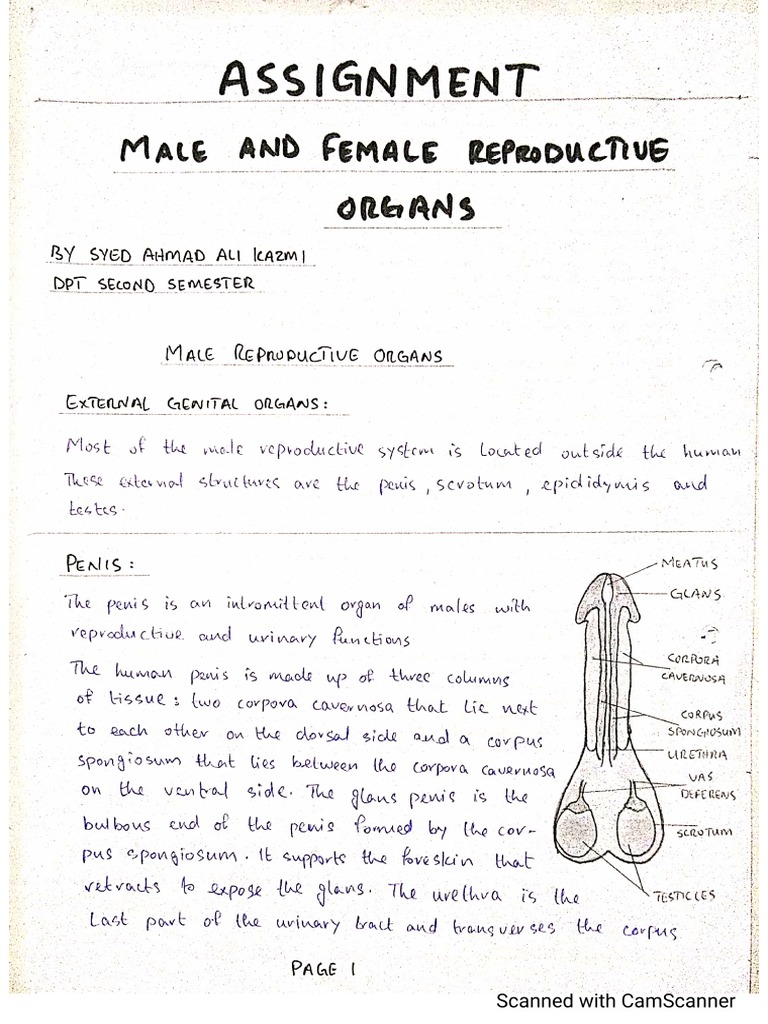 ASSIGNMENT
MALE AND FEMALE REPRODUCTIVE
ORGANS
BY SYED AHMAD ALI KAZMI
DPT SECOND SEMESTER
MALE REPRODUCTIVE ORGANS
EXTERNAL GENITAL ORGANS:
Most of the male reproductive system is located outside the human
These external structures are the penis, scrotum, epididymis and
testes.
PENIS:
The penis is an intromittent organ of males with
reproductive and urinary functions
The human penis is made up of three columns
of tissue: two corpora cavernosa that lie next
to each other on the dorsal side and a corpus
spongiosum that lies between the corpora cavernosa
on the ventral side. The glans penis is the
bulbous end of the penis formed by the cor-
pus spongiosum. It supports the foreskin that
retracts to expose the glans. The urethra is the
last part of the urinary tract and transverses the corpus
MEATUS
GLANS
CORPORA
CAVERNOSA
CORPUS
SPONGIOSUM
URETHRA
VAS
DEFERENS
SCROTUM
TESTICLES
PAGE 1
Scanned with CamScanner